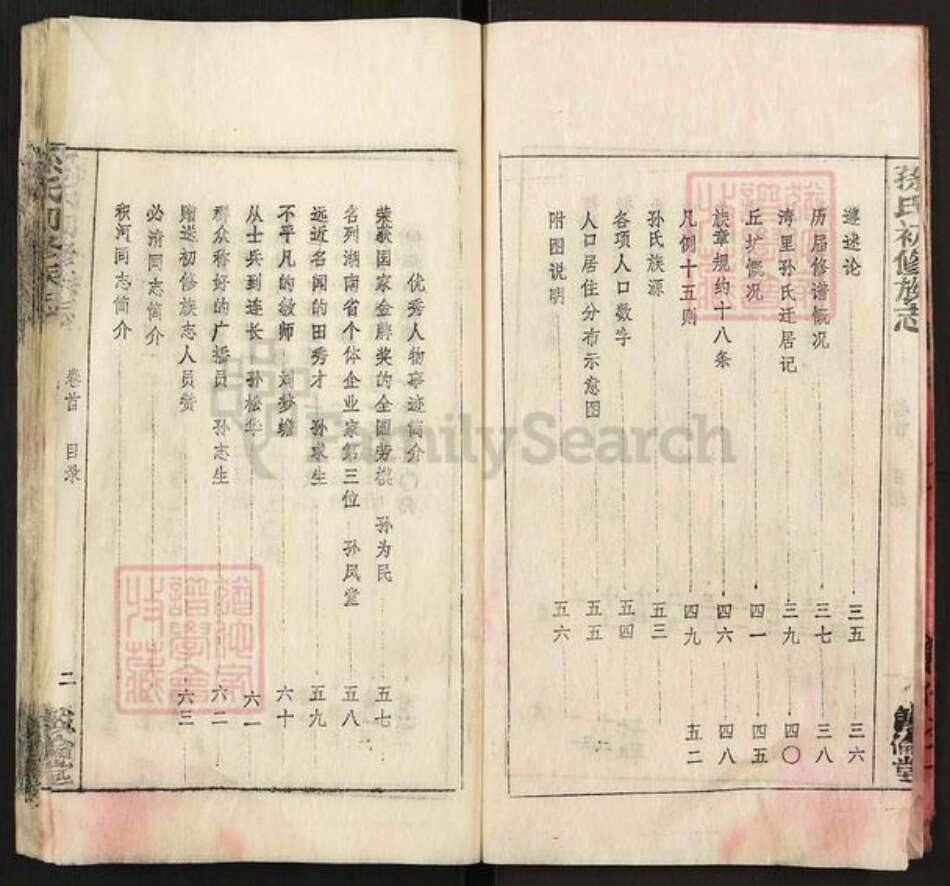 孙氏初修族志
遵述论 三五 三六
历届修谱慨况 三七 三八
湾里孙氏迁居记 三九 四〇
丘圹慨况 四一 四五
族章规约十八条 四六 四八
凡例十五则 四九 五二
孙氏族源 五三
各项人口数字 五四
人口居住分布示意图 五五
附图说明 五六
优秀人物事迹简介
荣获国家金牌奖的全国劳模 孙为民 五七
名列湖南省个体企业家第三位 孙凤堂 五八
远近名闻的田秀才 孙求生 五九
不平凡的教师 刘梦蟾 六十
从士兵到连长 孙松华 六一
群众称好的广播员 孙志生 六二
赠送初修族志人员赞 六三
必清同志简介
积河同志简介
卷首 目录
二
FamilySearch